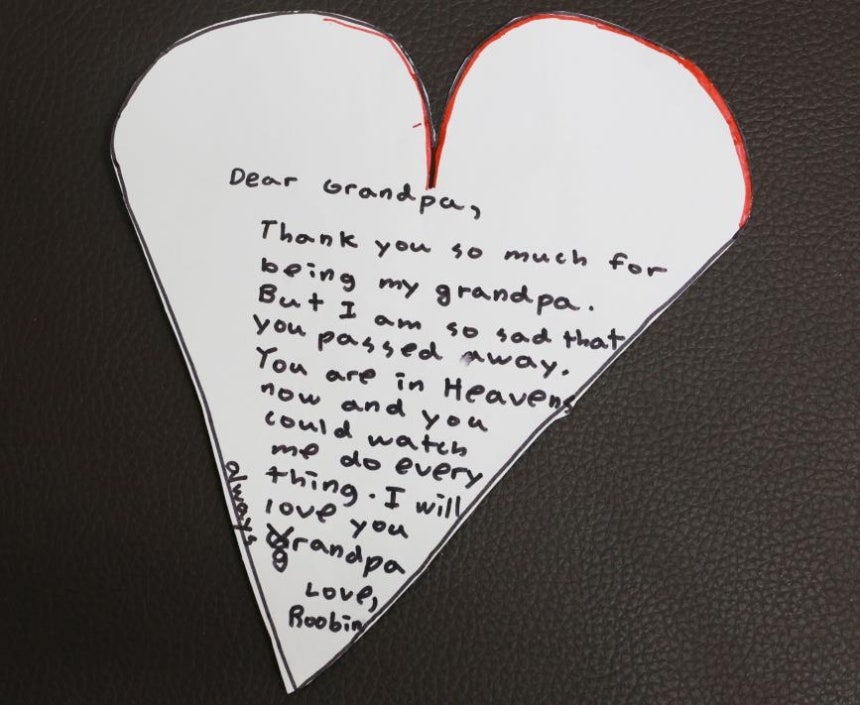 Dear Grandpa,
Thank you so much for
being my grandpa.
But I am so sad that
you passed away.
You are in Heavens
now and you
could watch
me do every
thing. I will
always love you
grandpa
Love,
Roobin